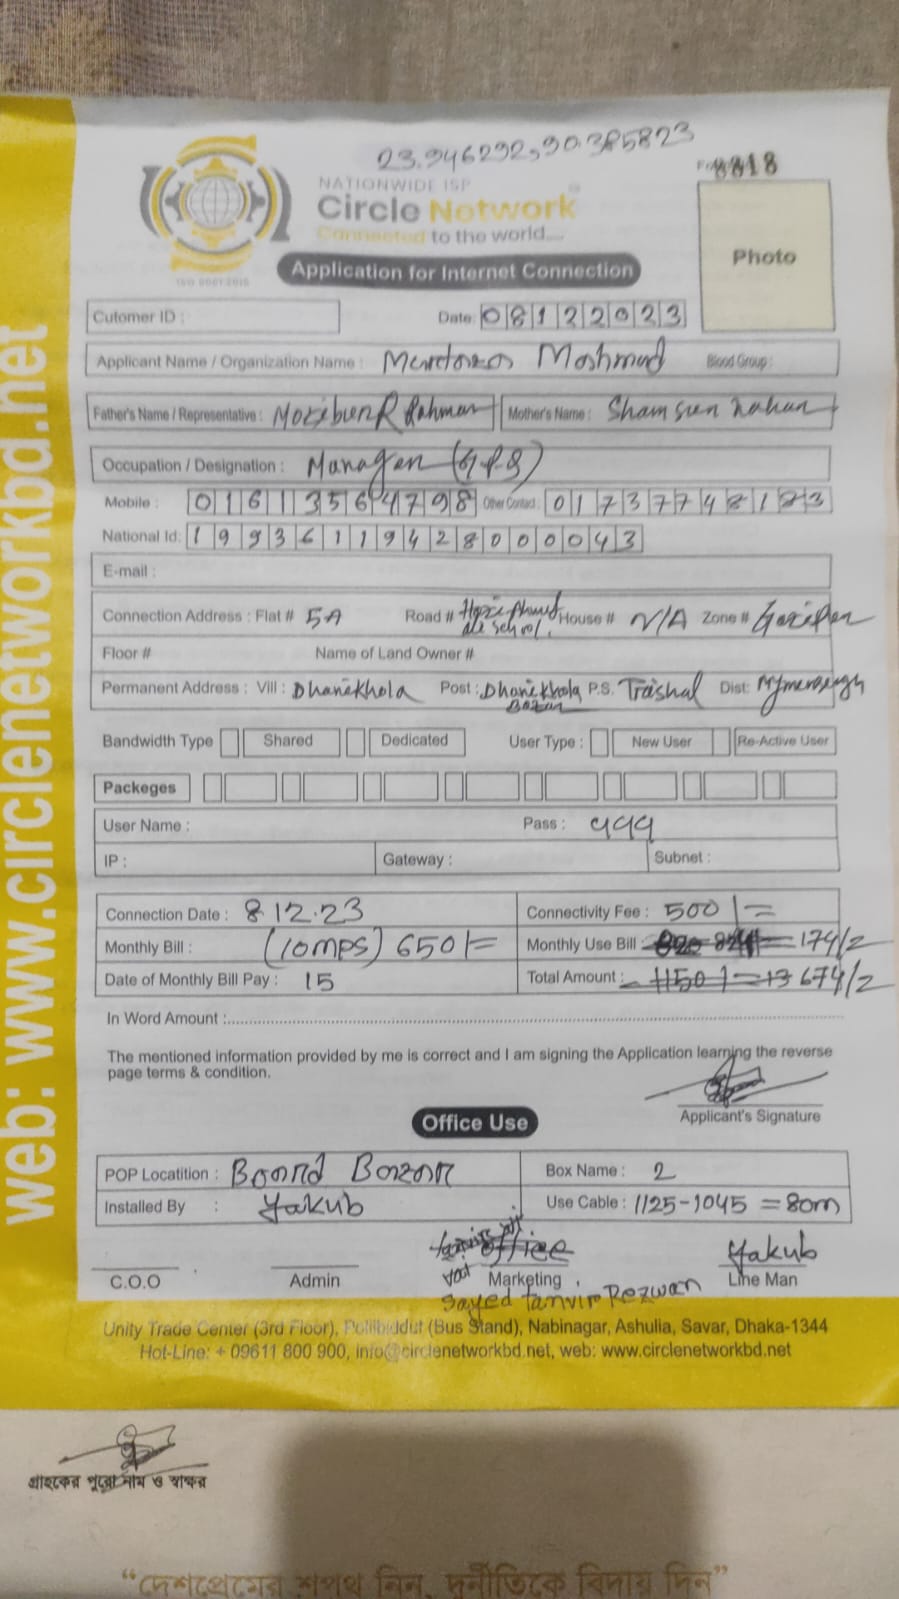 23.946292, 90.385823
8818
NATIONWIDE ISP
Circle Network
Connected to the world....
ISO 9001:2015
Photo
Application for Internet Connection
Cutomer ID :
Date: 08122023
Applicant Name / Organization Name : Mashmud Blood Group :
Father's Name / Representative : Rahman Mother's Name :
Occupation / Designation : Manager
Mobile : 01613564798 Other Contact : 01737748123
National Id: 19936119428000043
E-mail :
Connection Address : Flat # 5A Road # School. House # N/A Zone #
Floor # Name of Land Owner #
Permanent Address : Vill : Dhanikhola Post : Dhanikhola Bazar P.S. Trishal Dist:
Bandwidth Type Shared Dedicated User Type : New User Re-Active User
Packeges
User Name : Pass :
IP : Gateway : Subnet :
Connection Date : 8.12.23 Connectivity Fee : 500/=
Monthly Bill : (10mps) 650/= Monthly Use Bill : 174/=
Date of Monthly Bill Pay : 15 Total Amount : 674/=
In Word Amount :
The mentioned information provided by me is correct and I am signing the Application learning the reverse
page terms & condition.
Applicant's Signature
Office Use
POP Locatition : Board Bazar Box Name : 2
Installed By : Yakub Use Cable : 1125-1045 = 80m
office Yakub
C.O.O Admin Marketing Line Man
Sayed Tanvir Rezwan
Unity Trade Center (3rd Floor), Pollibiddut (Bus Stand), Nabinagar, Ashulia, Savar, Dhaka-1344
Hot-Line: + 09611 800 900, info@circlenetworkbd.net, web: www.circlenetworkbd.net
web: www.circlenetworkbd.net
গ্রাহকের পুরো নাম ও স্বাক্ষর
“দেশপ্রেমের শপথ নিন, দুর্নীতিকে বিদায় দিন”